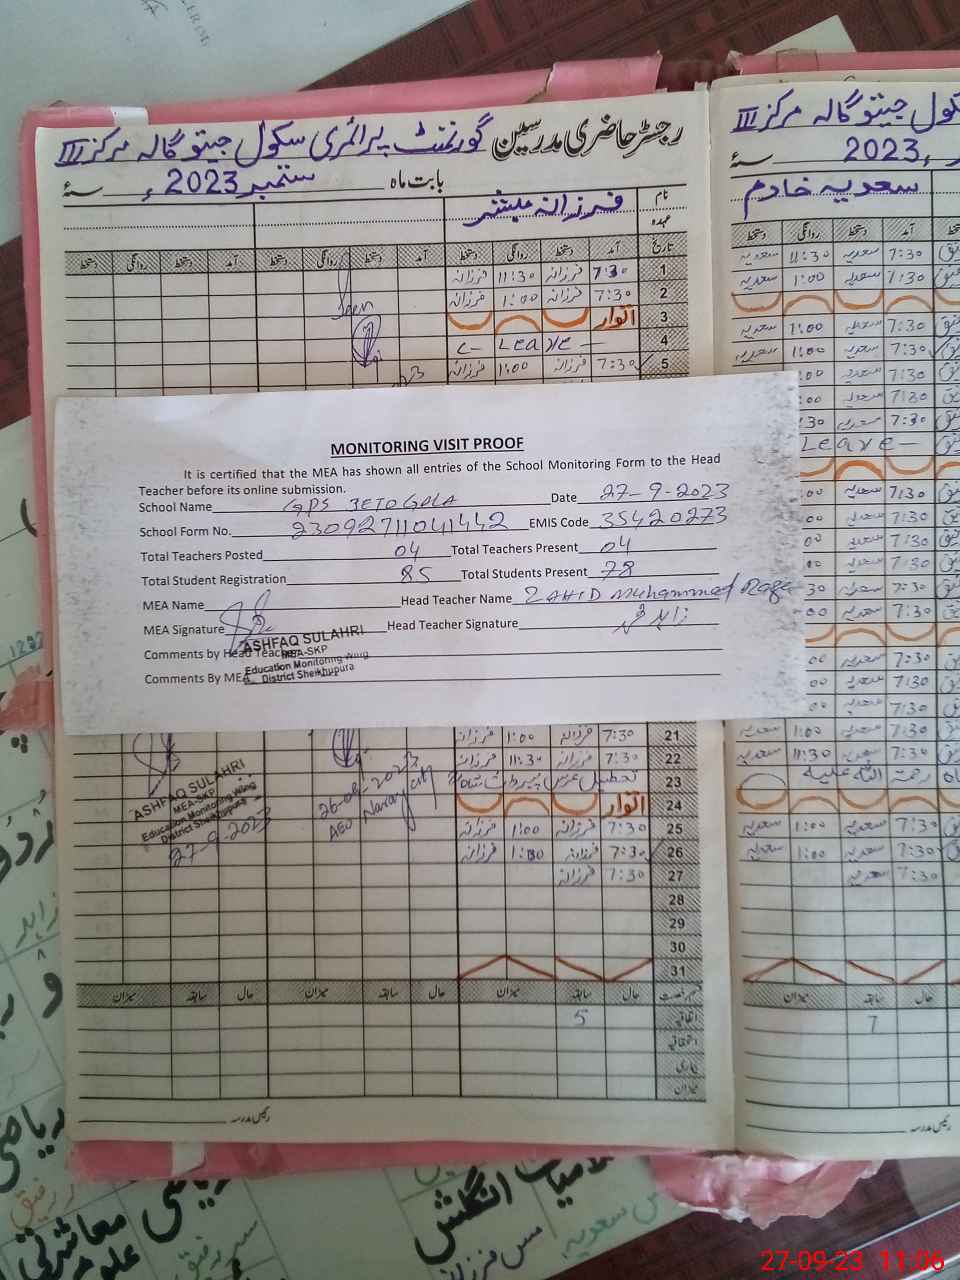 رجسٹر حاضری مدرسین گورنمنٹ پرائمری سکول جیتو گالہ مرکز III
بابت ماہ ستمبر 2023ء سنہ
نام فرزانہ مبشر
عہدہ
تاریخ آمد دستخط روانگی دستخط آمد دستخط روانگی دستخط
1 7:30 فرزانہ 11:30 فرزانہ
2 7:30 فرزانہ 1:00 فرزانہ
Seen
3 اتوار
4 Leave
5 7:30 فرزانہ 1:00 فرزانہ
MONITORING VISIT PROOF
It is certified that the MEA has shown all entries of the School Monitoring Form to the Head
Teacher before its online submission.
School Name GPS JETO GALA Date 27-9-2023
School Form No. 23092711041442 EMIS Code 35420273
Total Teachers Posted 04 Total Teachers Present 04
Total Student Registration 85 Total Students Present 78
MEA Name Head Teacher Name ZAHID Muhammad
MEA Signature Head Teacher Signature
Comments by Head Teacher
Comments By MEA
ASHFAQ SULAHRI
MEA-SKP
Education Monitoring Wing
District Sheikhupura
21 7:30 فرزانہ 1:00 فرزانہ
22 7:30 فرزانہ 11:30 فرزانہ
23 تعطیل عرس پیر وارث شاہ
24 اتوار
25 7:30 فرزانہ 1:00 فرزانہ
26 7:30 فرزانہ 1:00 فرزانہ
27 7:30 فرزانہ
28
29
30
31
ASHFAQ SULAHRI
MEA-SKP
Education Monitoring Wing
District Sheikhupura
27-9-2023
26-09-2023
AEO
حال سابقہ میزان حال سابقہ میزان
اتفاقیہ 5
استحقاقیہ
بیماری
میزان
رئیس مدرسہ
جیتو گالہ مرکز III
2023ء سنہ
سعدیہ خادم
آمد دستخط روانگی دستخط
7:30 سعدیہ 11:30 سعدیہ
7:30 سعدیہ 1:00 سعدیہ
7:30 سعدیہ 1:00 سعدیہ
7:30 سعدیہ 1:00
Leave
رحمۃ اللہ علیہ
7:30 سعدیہ 1:00 سعدیہ
7:30 سعدیہ 1:00 سعدیہ
7:30 سعدیہ
حال سابقہ میزان
7
رئیس مدرسہ
ریاضی
معاشرتی علوم
انگلش
مس فرزانہ
27-09-23 11:06